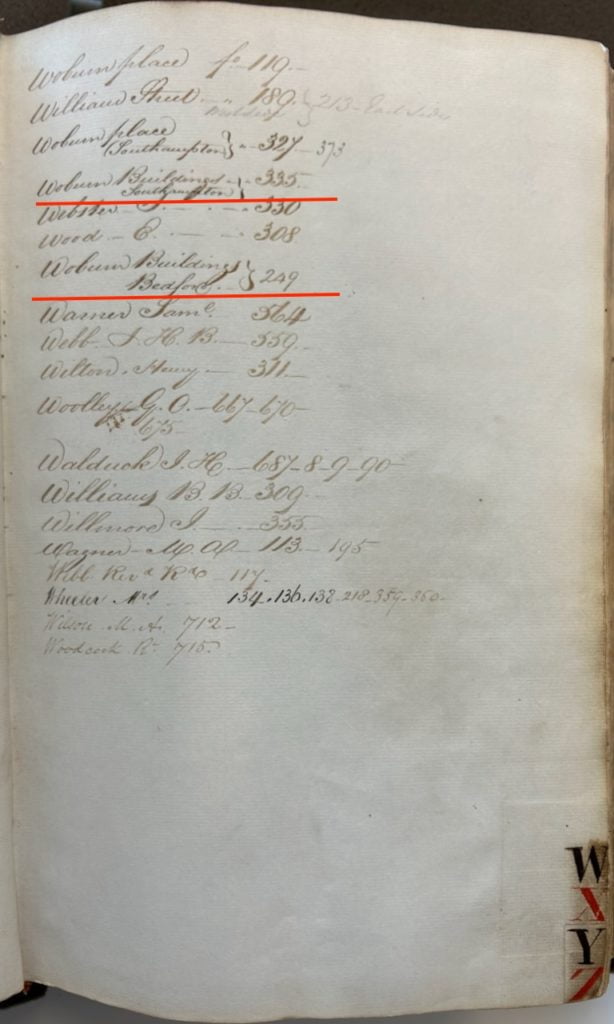 Woburn place fo 119.—
William Street — „ 189. } 213 - East Side
Woburn place
(Southampton) } „ 327 - 373
Woburn Buildings
Southampton } — 335
Webster — J. — . — .. — 330
Wood — E. — .. — 308
Woburn Buildings
Bedford. — } 249
Warner Saml. 364
Webb — J. H. B. — 359.—
Wilton. Henry — 311.—
Woolley G. O. — 667 - 670
675 —
Walduck J. H. — 687 - 8 - 9 - 90
Williams B. B. 309.
Willmore J. — .. — 355
Wagner — M. A. — 113 — 195
Webb Revd. Rd. — 117.
Wheeler Mrs 134. 136. 138 - 218 - 359 - 360 -
Wilson M. A. 712 —
Woodcock R. 715.
W
X
Y
Z